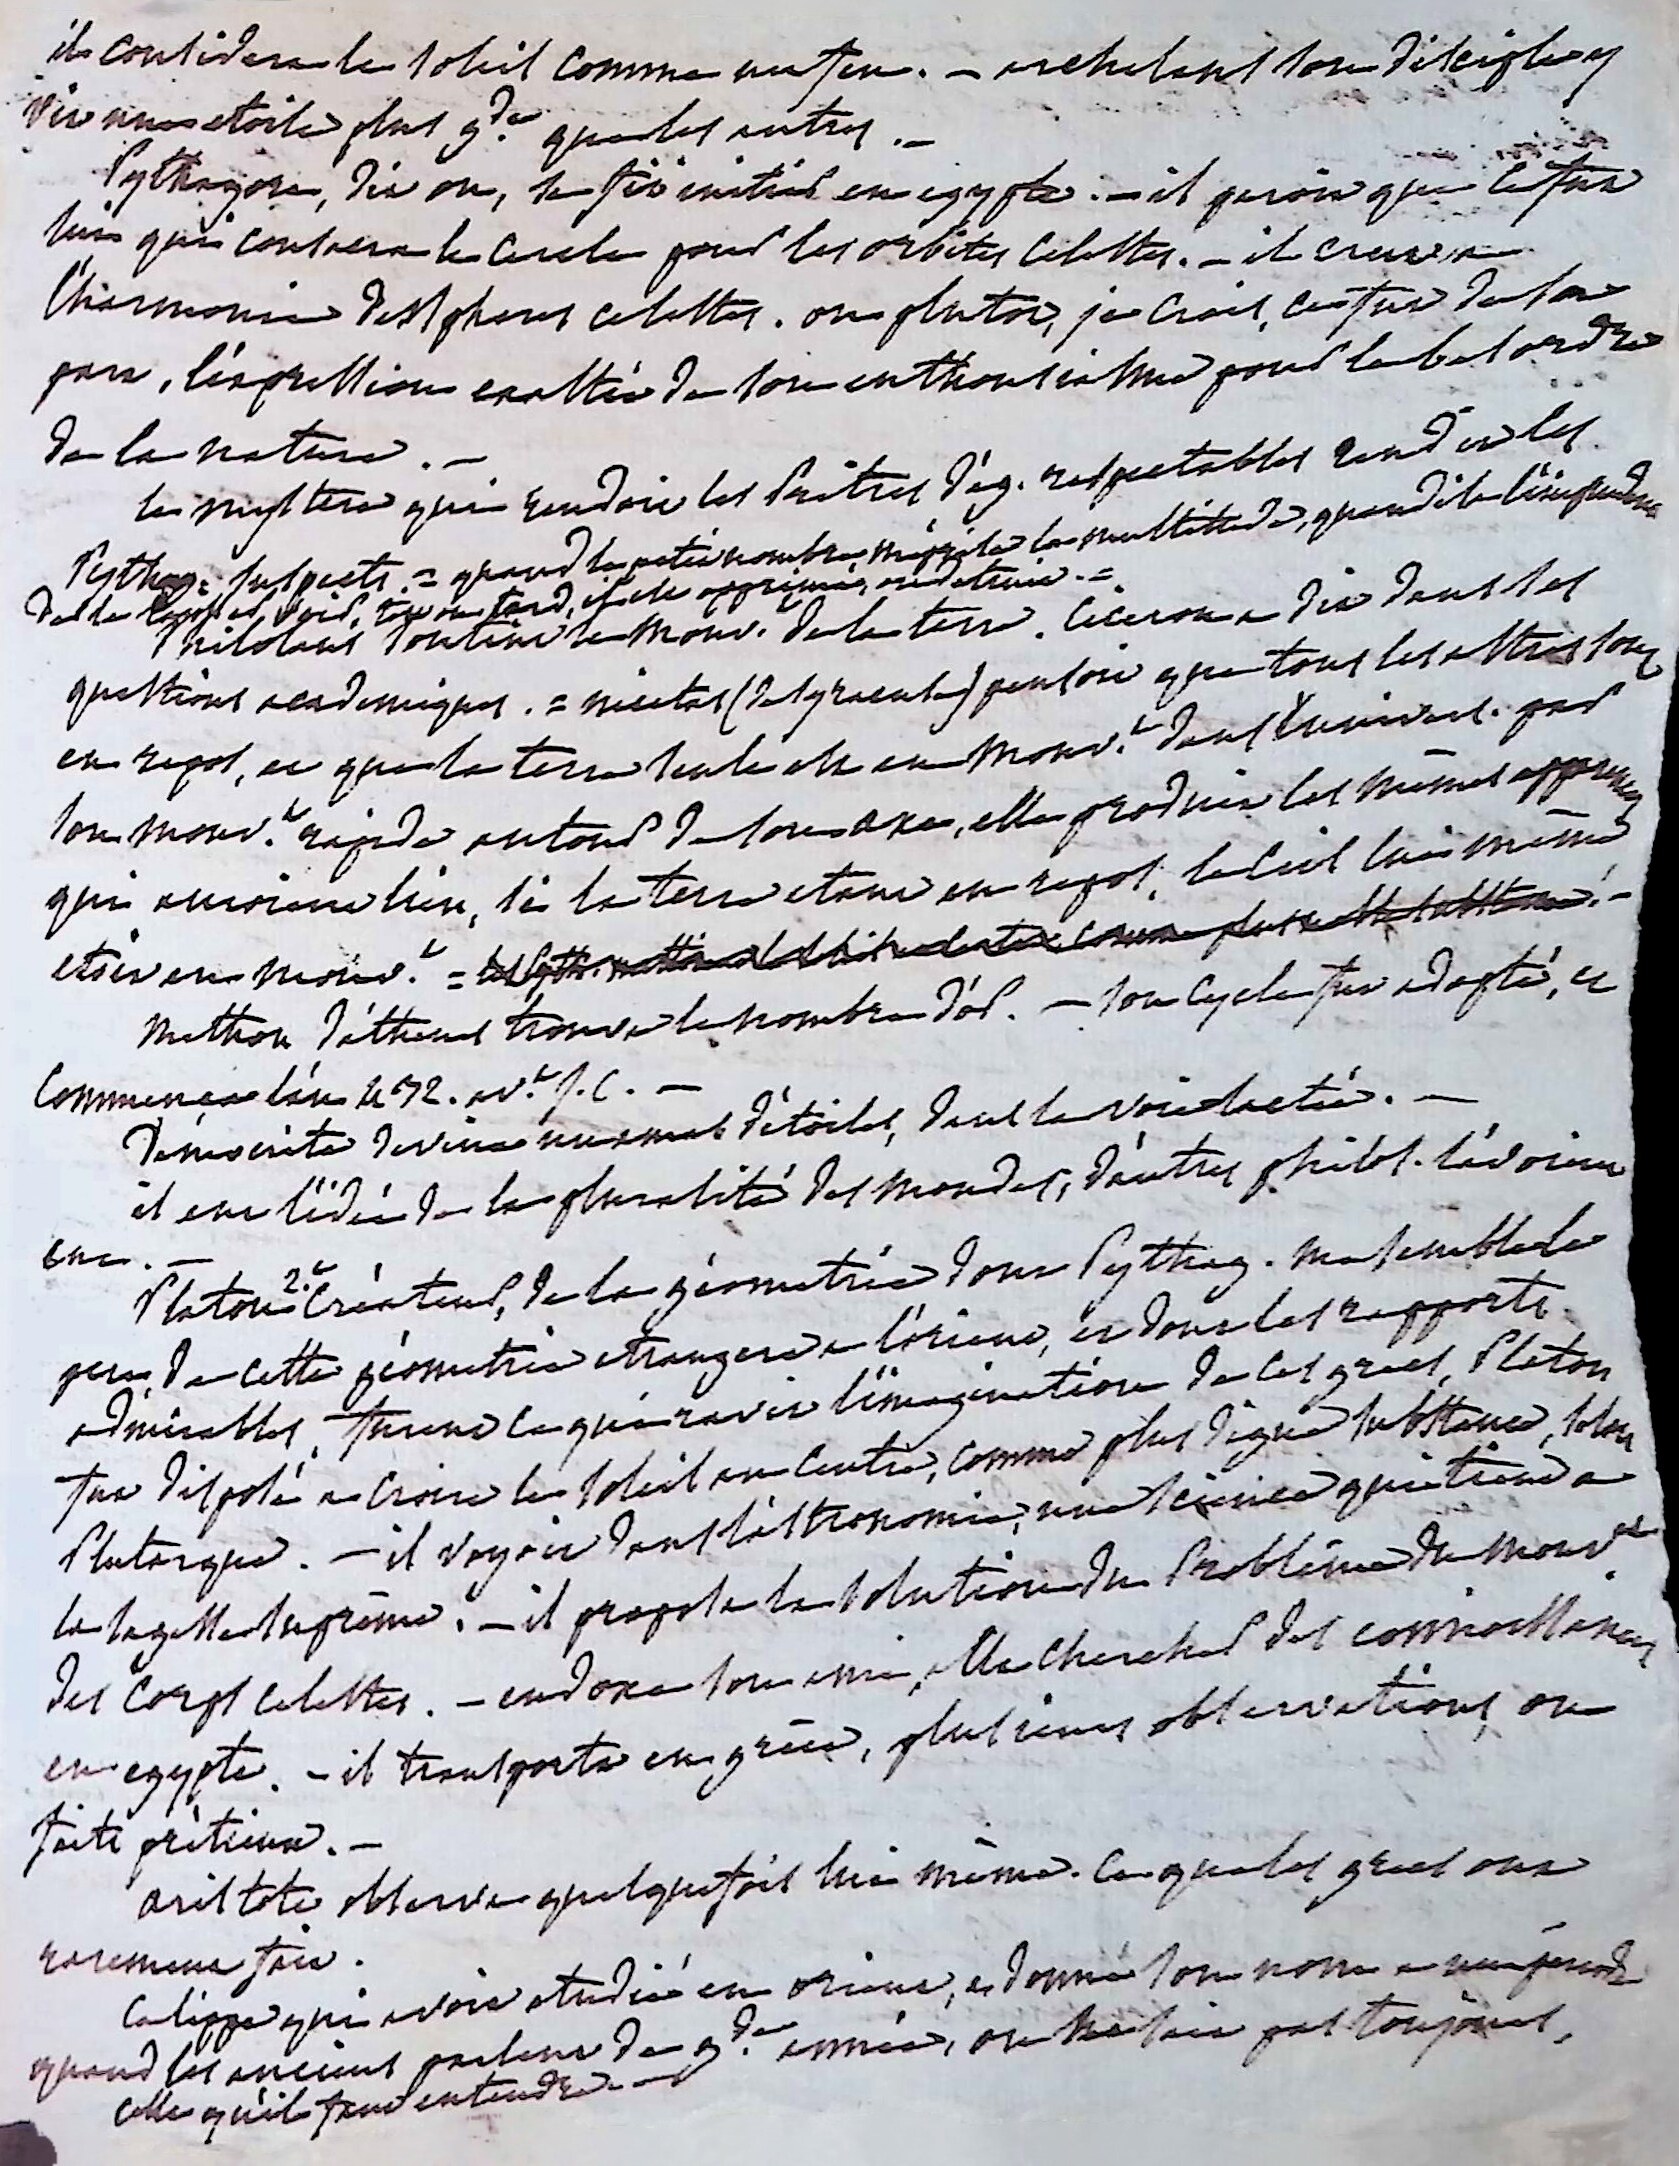 il considera le soleil comme un feu. — archelaus son disciple y
vit une etoile plus g.de que les autres. —
Pythagore, dit on, se fit initier en egypte. — il paroit que ce fut
lui qui consacra le cercle pour les orbites celestes. — il crut a
l'harmonie des spheres celestes. ou plutot, je crois, ce fut de sa
part, l'expression exaltée de son enthousiasme pour le bel ordre
de la nature. —
le mystere qui rendoit les Prêtres d'eg. respectables rendit les
Pythag. suspects. = quand le petit nombre méprise la multitude, quand il l'
de la tot ou tard, il est opprimé, ou detruit. =
Philolaus soutint le mouv.t de la terre. Ciceron a dit dans les
questions academiques. = nicetas (de syracuse) pensoit que tous les astres sont
en repos, et que la terre seule est en mouv.t dans l'univers. par
son mouv.t rapide autour de son axe, elle produit les mêmes apparences
qui auroient lieu, si la terre etant en repos, le ciel lui même
etoit en mouv.t =
Methon d'athenes trouva le nombre d'or. — son cycle fut adopté, et
commença l'an 432. av.t J.C. —
Démocrite devina un amas d'étoiles, dans la voie lactée. —
il eut l'idée de la pluralité des mondes, d'autres philos. l'avoient
eue. —
Platon 2.e Créateur, de la géometrie dont Pythag. me semble le
pere, de cette géometrie etrangere a l'orient, et dont les rapports
admirables, furent ce qui ravit l'imagination de ces grecs, Platon
fut disposé a croire le soleil au centre, comme plus digne substance, selon
Plutarque. — il voyoit dans l'astronomie, une science qui tient a
la sagesse suprême. — il proposa la solution du Problême du mouv.t
des corps celestes. — eudoxe son ami, alla chercher des connoissances
en egypte. — il transporta en grece, plusieurs observations, ou
faits prétieux. —
aristote observa quelquefois lui même. ce que les grecs ont
rarement fait.
Calippe qui avoit etudié en orient, a donné son nom a une période
quand les anciens parlent de g.de année, on ne sait pas toujours,
celle qu'il faut entendre. —